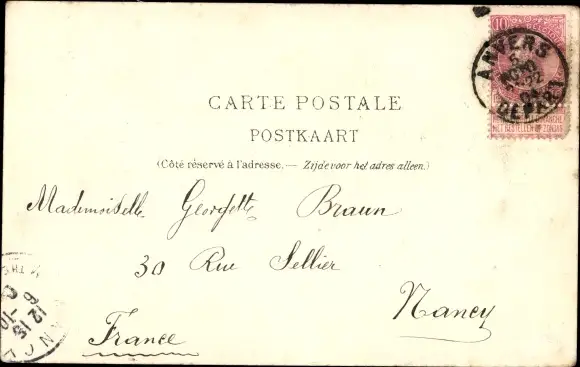 10
ANVERS
5
NOV
22
04
DEPART
CARTE POSTALE
POSTKAART
(Côté réservé à l'adresse. — Zijde voor het adres alleen.)
Mademoiselle Georgette Braun
30 Rue Sellier
Nancy
France